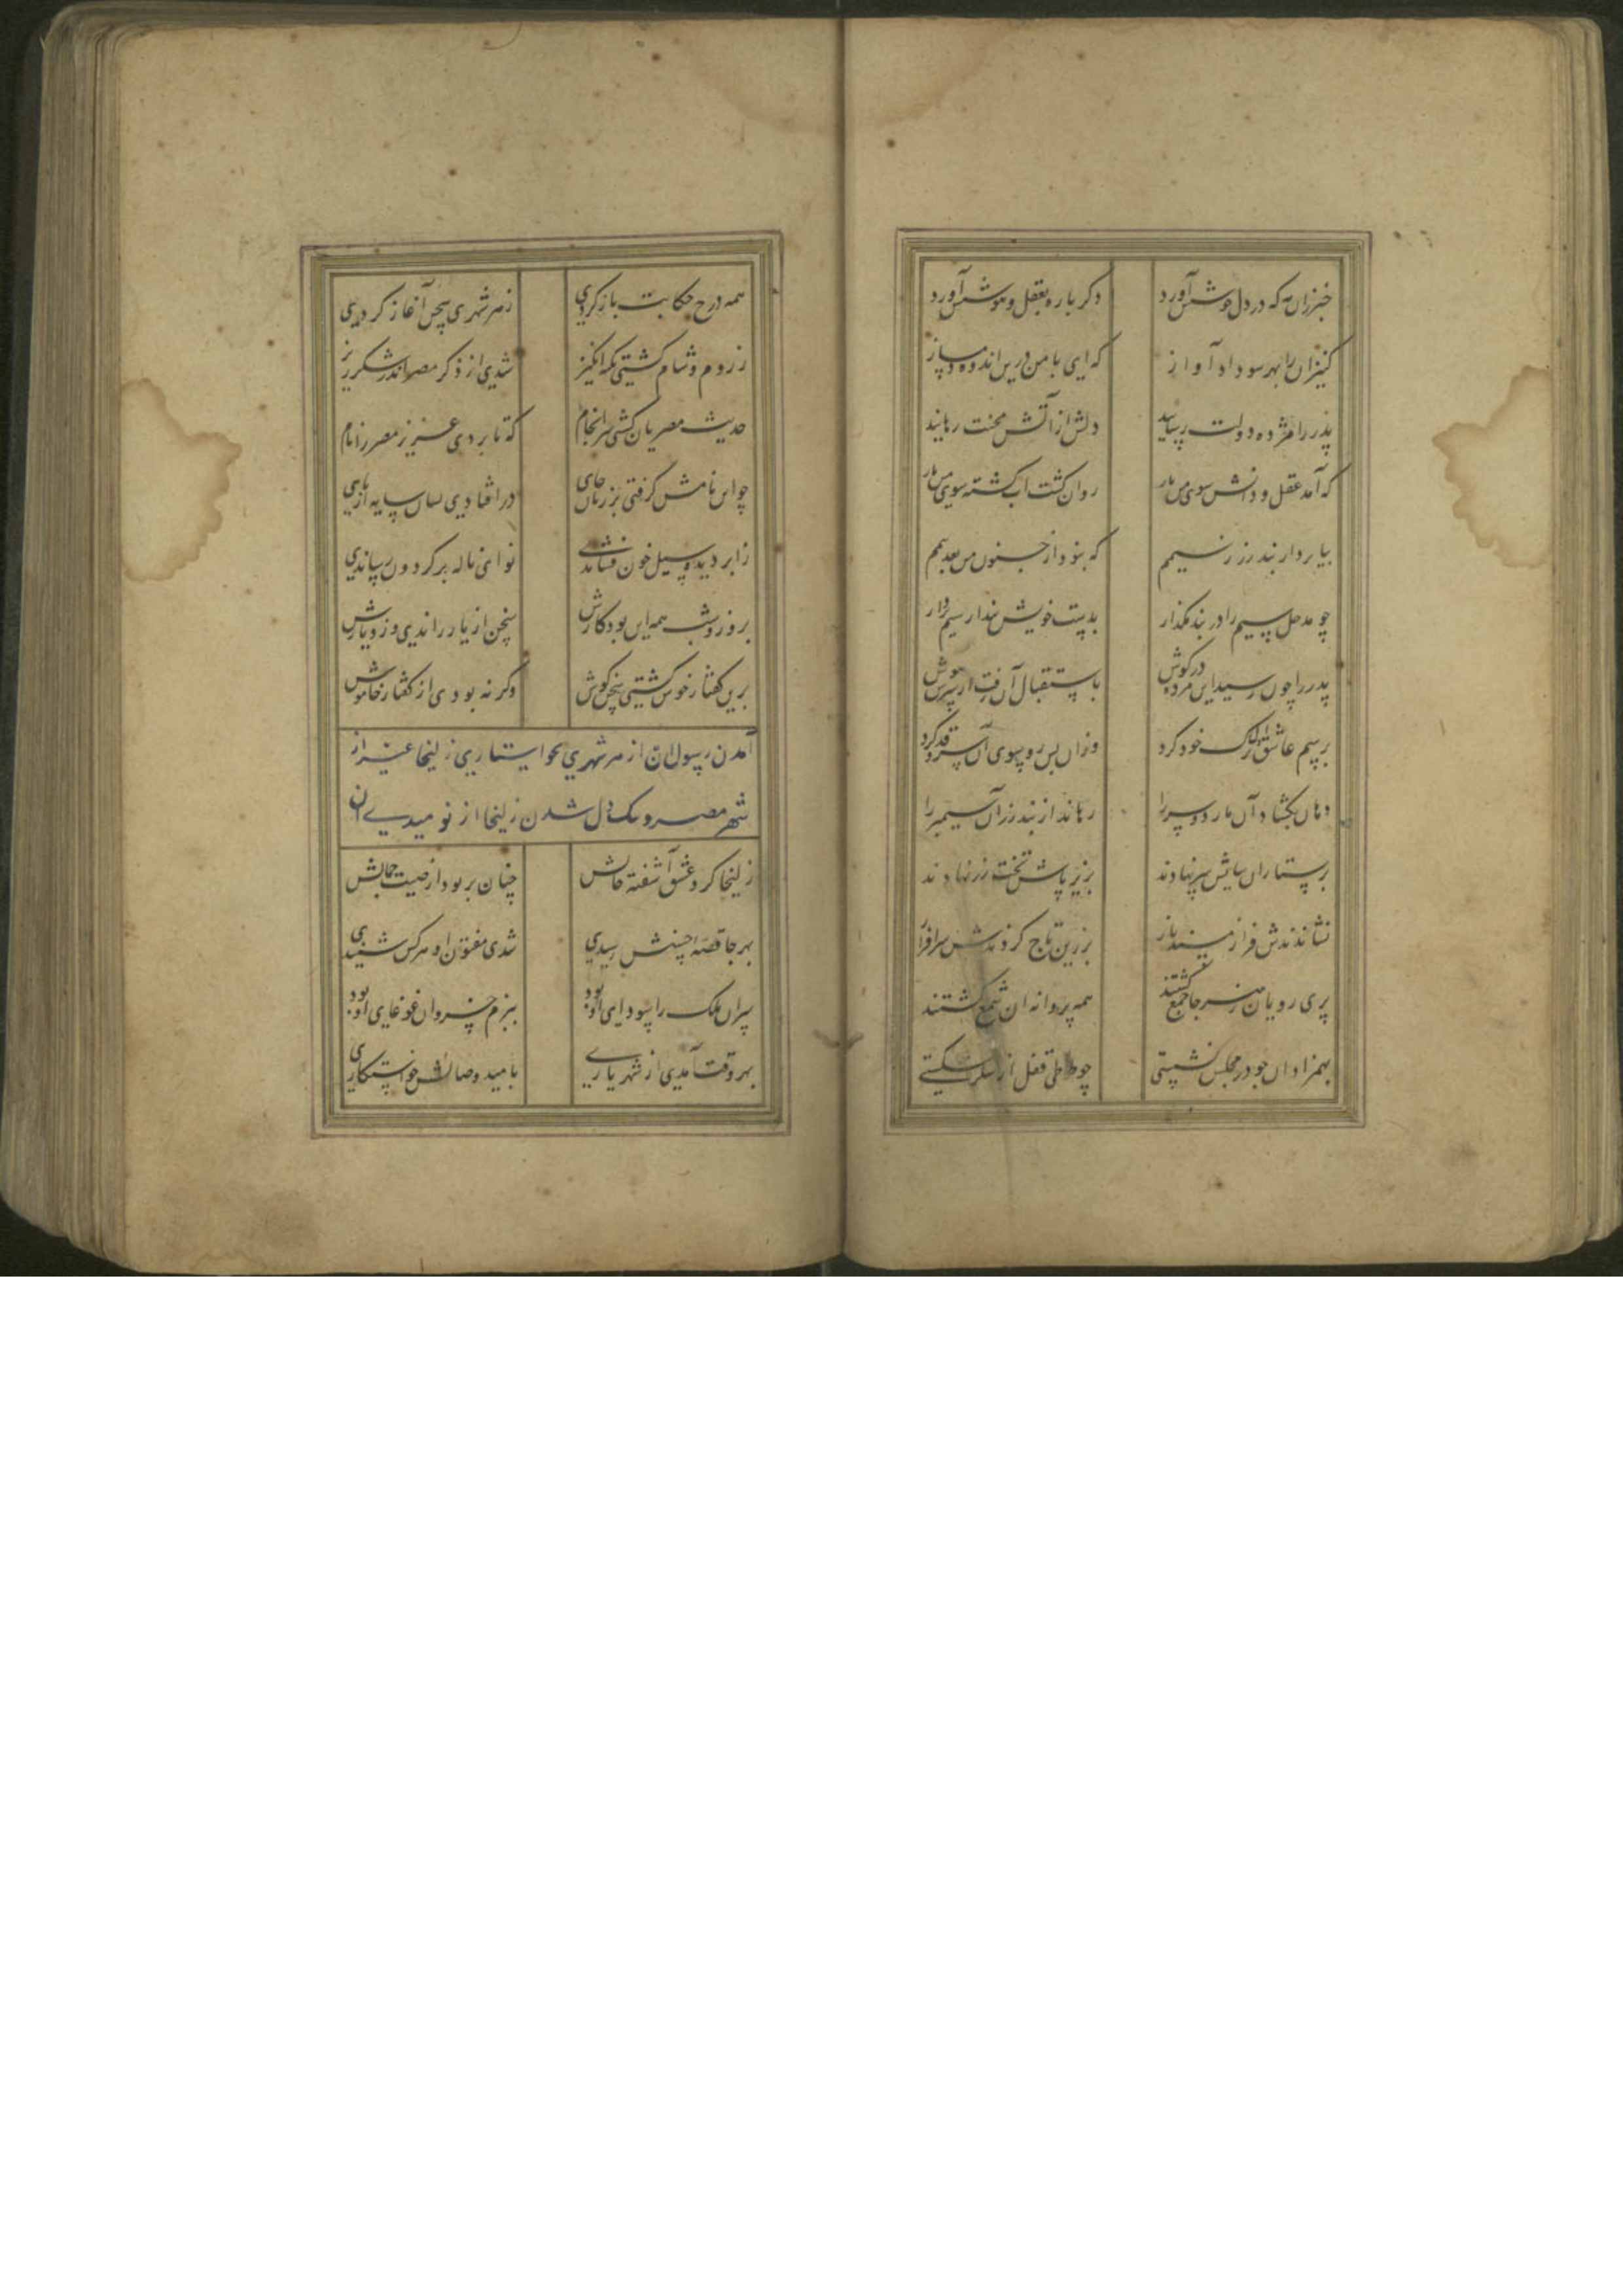 خبر زان مه که در دل جوش آورد دگر باره بعقل و هوش آورد
کنیزان را بهر سو داد آواز که ای با من درین اندوه دمساز
پدر را مژده دولت رسانید دلش از آتش محنت رهانید
که آمد عقل و دانش سوی من باز روان گشت آب رفته سوی من باز
بیا بردار بند زر ز سیمم که نبود از جنون من بعد بیمم
چو مدخل سیم را در بند مگذار بدست خویش بند از سیم بردار
پدر را چون رسید این مژده در گوش باستقبال آن رفت از سرش هوش
برسم عاشق اول ترک خود کرد وزان پس رو بسوی آن سرو قد کرد
دهان بگشاد آن مار دو سر را رهاند از بند زر آن سیمبر را
پرستاران بپایش سر نهادند بزیر پاش تخت زر نهادند
نشاندندش فراز مسند ناز بزرین تاج کردندش سرافراز
پری رویان ز هر جا جمع گشتند همه پروانه آن شمع گشتند
بهمزادان چو در مجلس نشستی چو طوطی قفل از شکر شکستی
همه درج حکایت باز کردی ز هر شهری سخن آغاز کردی
ز روم و شام گشتی نکته انگیز شدی از ذکر مصر اندر شکرریز
حدیث مصریان کشی سرانجام که تا بردی عزیز مصر را نام
چو این نامش گرفتی بر زبان جای در افتادی بسان سایه از پای
ز ابر دیده سیل خون فشاندی نوای ناله بر گردون رساندی
بروز و شب همه این بود کارش سخن از یار راندی وز دیارش
برین گفتار خوش گشتی سخن گوش وگر نه بودی از گفتار خاموش
آمدن رسولان از هر شهری بخواستاری زلیخا غیر از
شهر مصر و تنگ دل شدن زلیخا از نومیدی آن
زلیخا گرد عشق آشفته حالش جهان پر بود از صیت جمالش
بهر جا قصه حسنش رسیدی شدی مفتون او هر کس شنیدی
سران ملک را سودای او بود ببزم خسروان غوغای او بود
بهر وقت آمدی از شهریاری بامید وصالش خواستگاری